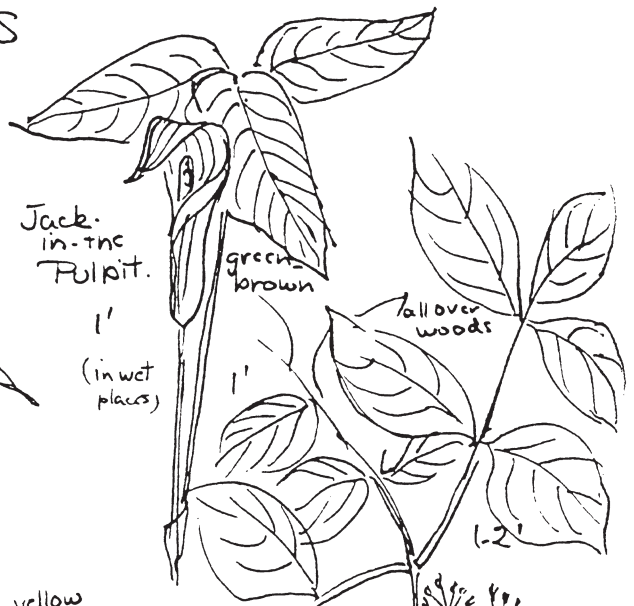 S
Jack-
in-the
Pulpit.
1'
(in wet
places)
green-
brown
1'
all over
woods
1-2'
yellow